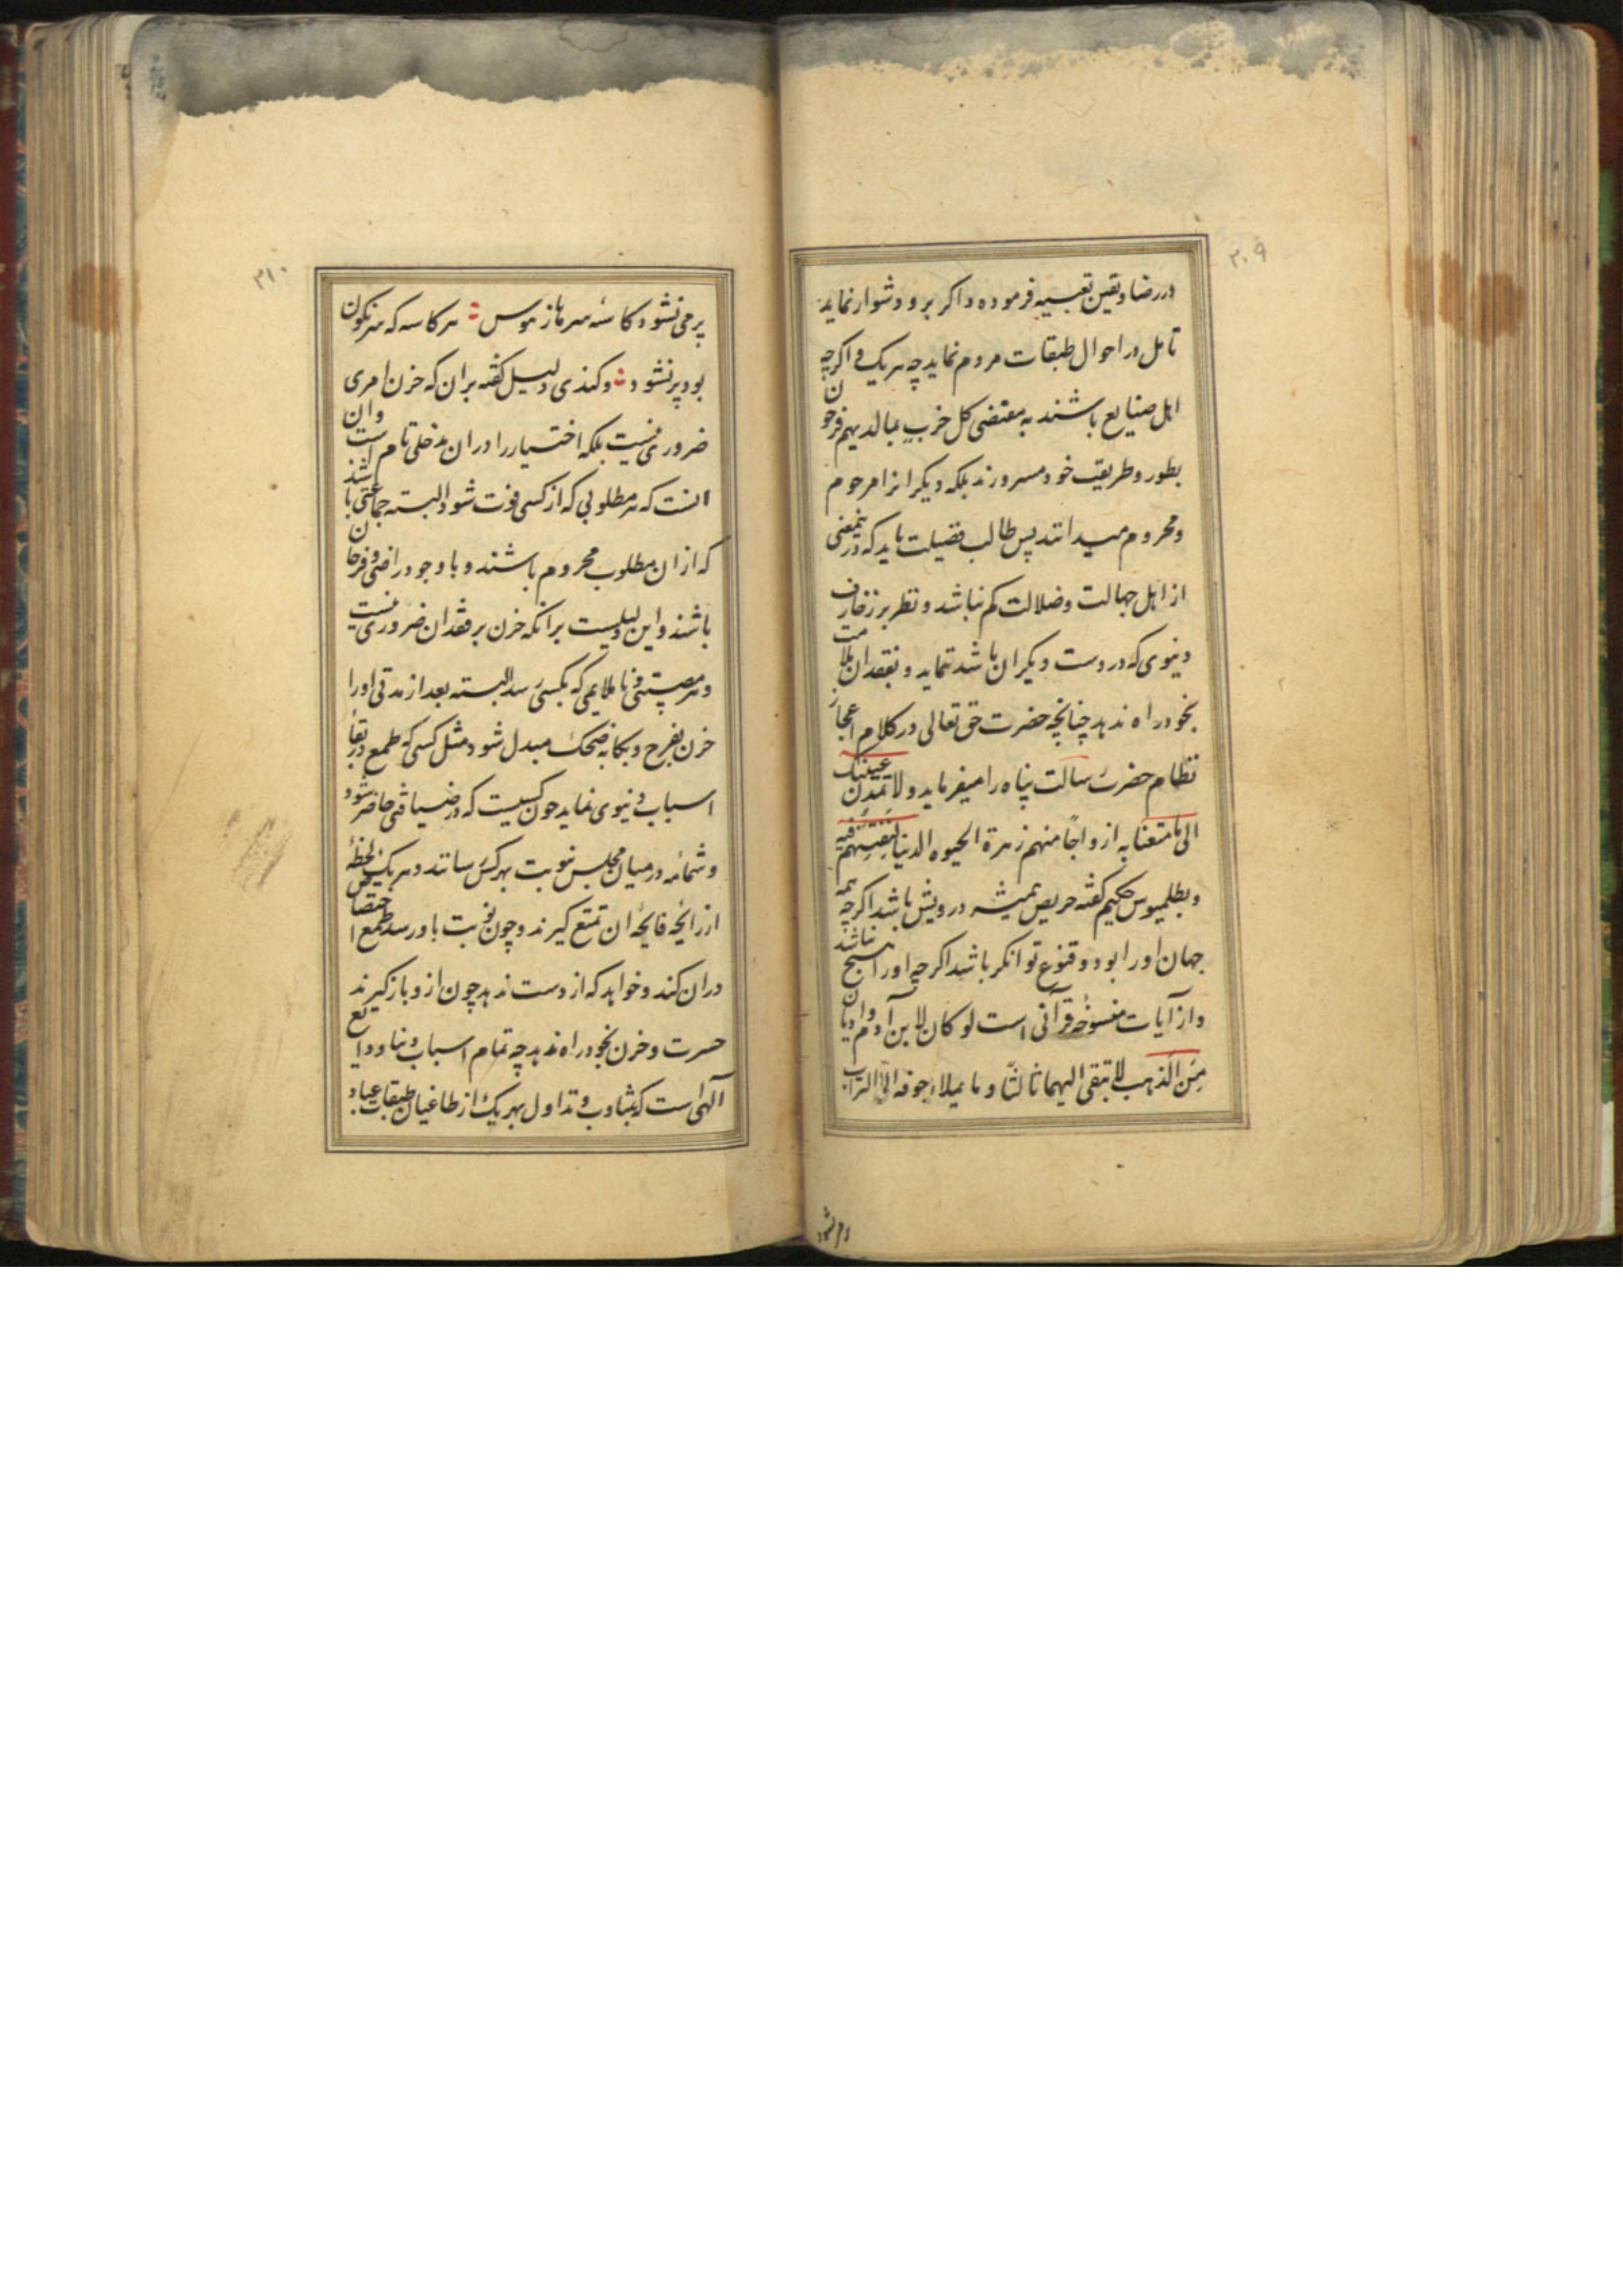 ۳۰۹
در رضا و یقین تعبیه فرموده و اکر برو دشوار نماید
تامل در احوال طبقات مردم نماید چه هر یک و اکرچه
اهل صنایع باشند به مقتضی کل حزب بمالدیهم فرحون
بطور و طریقت خود مسرورند بلکه دیکرانرا مرحوم
و محروم میدانند پس طالب فضیلت باید که درینمعنی
از اهل جهالت و ضلالت کم نباشد و نظر بر زخارف
دنیوی که در دست دیکران باشد ننماید و بفقدان ملامت
بخود راه ندهد چنانچه حضرت حق تعالی در کلام اعجاز
نظام حضرت رسالت پناه را میفرماید و لا تمدن عینیک
الی ما متعنا به ازواجًا منهم زهرة الحیوه الدنیا لنفتنهم فیه
و بطلمیوس حکیم کفته حریص همیشه درویش باشد اکرچه همه
جهان او را بود و قنوع توانکر باشد اکرچه او را هیچ نباشد
و از آیات منسوخه قرآنی است لو کان لابن آدم وادیان
مِنَ الذهب لابتقی الیهما ثالثًا و ما یملاء جوفه الا التراب
۳۱۰
پر می نشود کاسه سرها ز هوس هر کاسه که سرنکون
بود پر نشود و کندی دلیل کفته بر ان که حزن امری
ضروری نیست بلکه اختیار را در ان مدخلی تام است و ان
انست که هر مطلوبی که از کسی فوت شود البته جماعتی باشند
که از ان مطلوب محروم باشند و با وجود راضی و فرحان
باشند و این دلیلیست بر انکه حزن بر فقدان ضروری نیست
و هر مصیبتی و ناملایمی که بکسی رسد البته بعد از مدتی او را
حزن بفرح و بکا به ضحک مبدل شود مثل کسی که طمع در بقاء
اسباب دنیوی نماید چون کسیست که در ضیافتی حاضر شود
و شمامه در میان مجلس نوبت بهر کس رسانند و هر یک لحظهٔ
از رایحه فایحهٔ ان تمتع کیرند و چون نوبت باو رسد طمع اختصاص
در ان کند و خواهد که از دست ندهد چون از و باز کیرند
حسرت و حزن بخود راه ندهد چه تمام اسباب دنیا ودایع
آلهی است که بتناوب و تداول بهر یک از طاغیان طبقات عباد